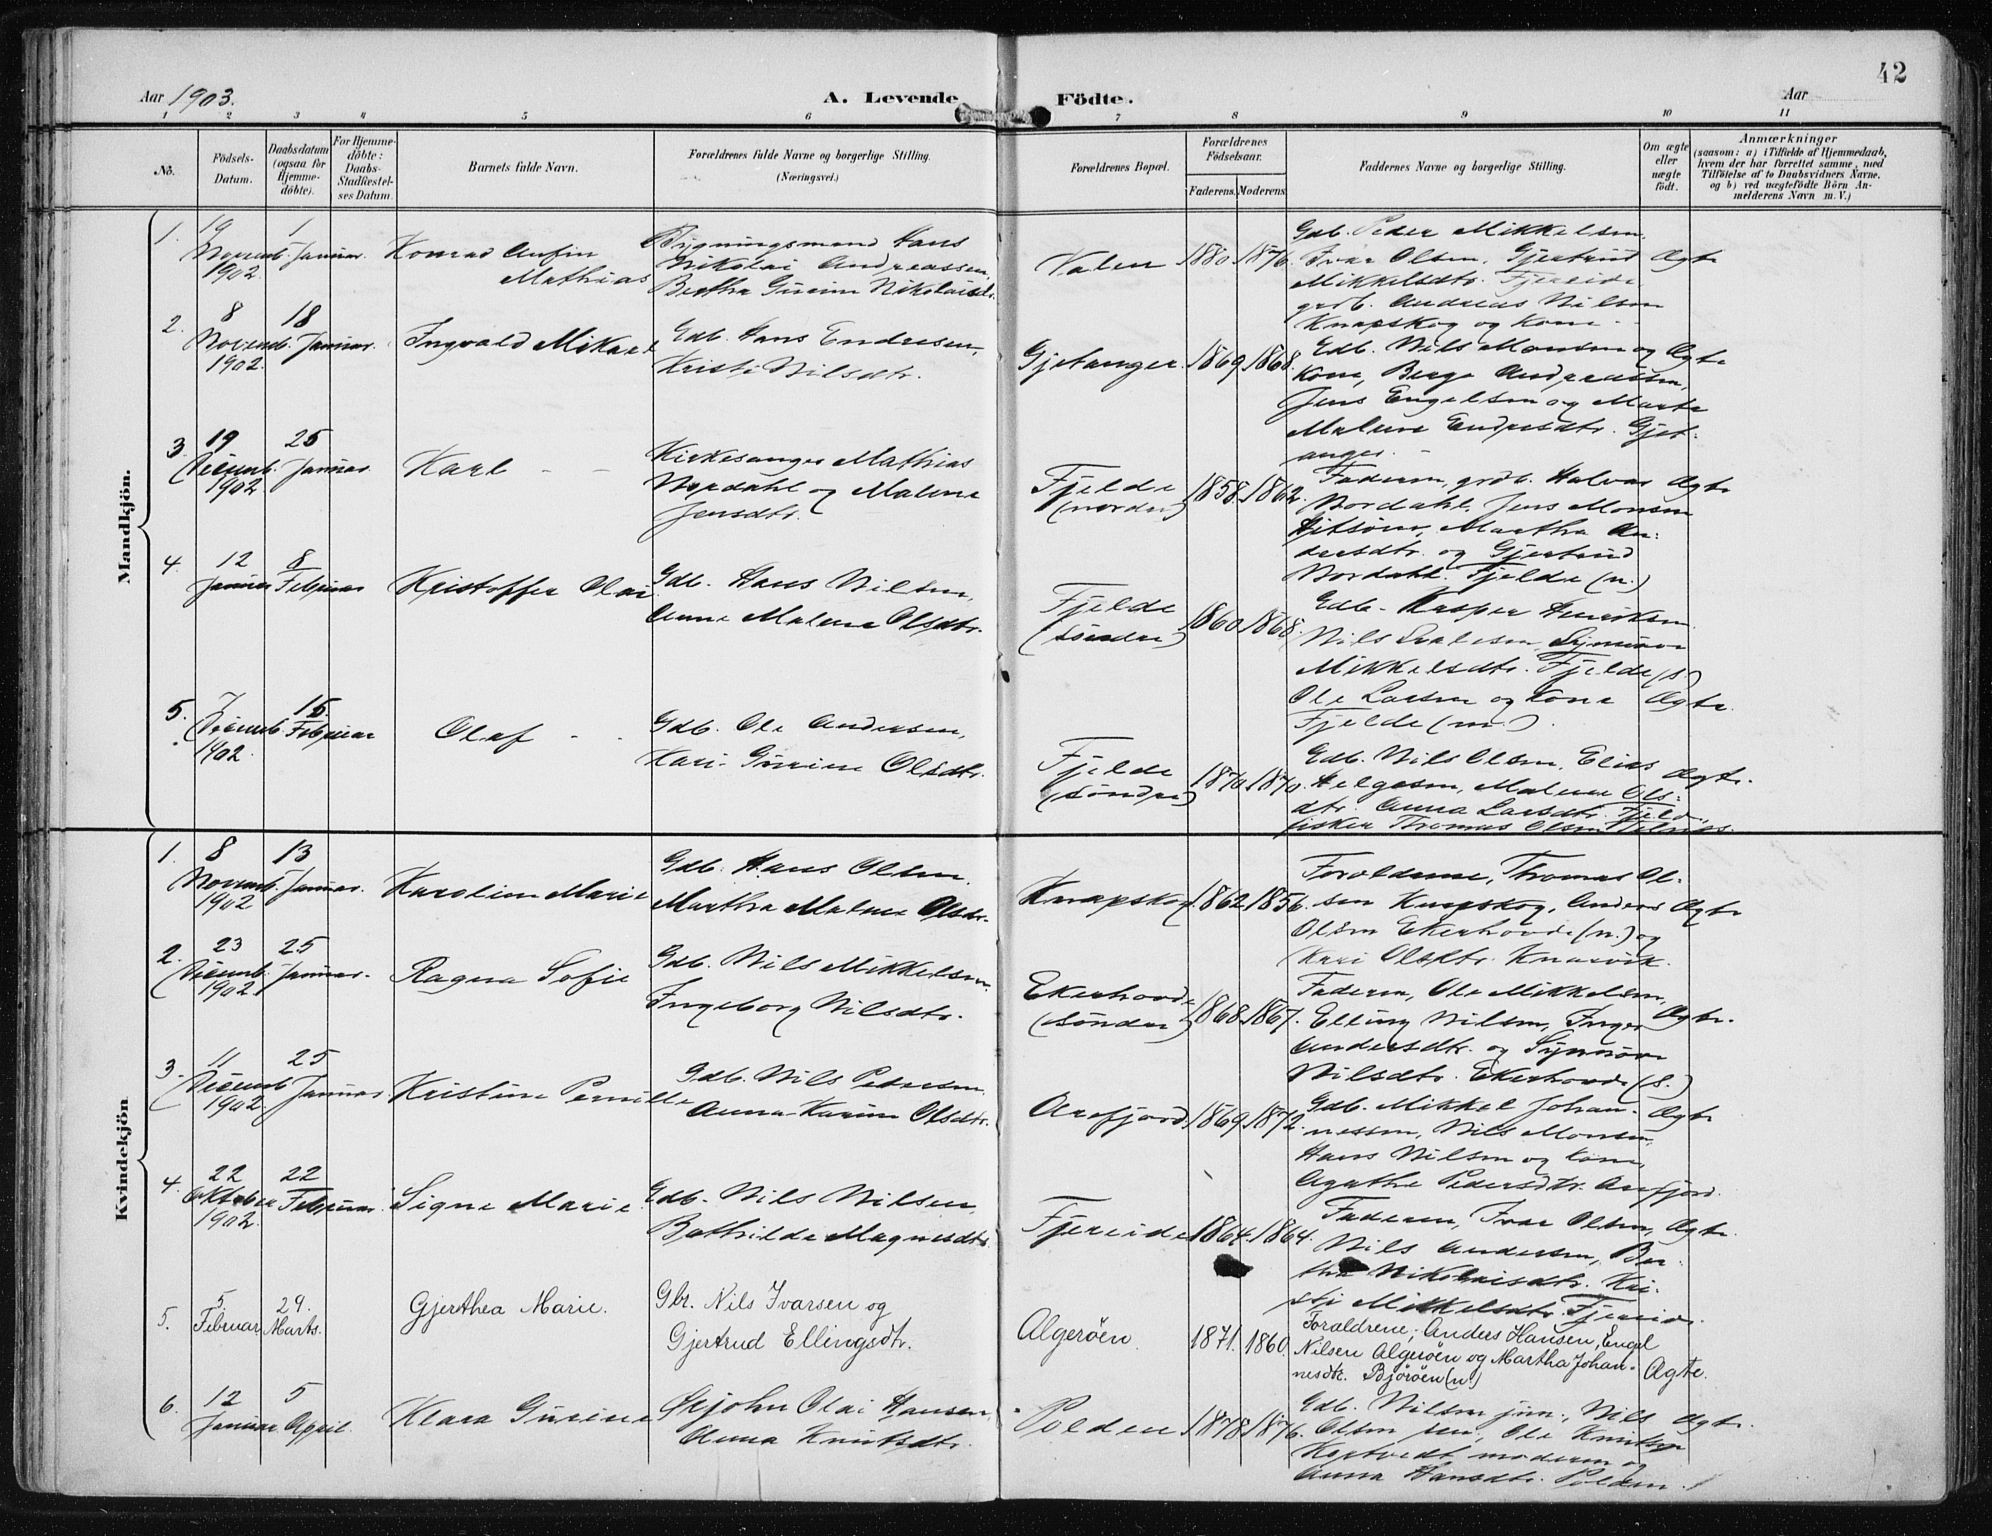 42
Aar 1903.
A. Levende Födte.
Aar
1 2 3 4 5 6 7 8 9 10 11
No.
Födsels-Datum.
Daabsdatum (ogsaa for Hjemme-döbte).
For Hjemme-döbte: Daabs-Stadfæstel-ses Datum.
Barnets fulde Navn.
Forældrenes fulde Navne og borgerlige Stilling.
(Næringsvei.)
Forældrenes Bopæl.
Forældrenes Födselsaar.
Faderens. Moderens.
Faddernes Navne og borgerlige Stilling.
Om ægte eller uægte födt.
Anmærkninger
(saasom: a) i Tilfælde af Hjemmedaab,
hvem der har forrettet samme, med
Tilföielse af to Daabsvidners Navne.
og b) ved uægtefödte Börn An-
melderens Navn m. V.)
Mandkjön.
1.
19 Novemb. 1902
1 Januar.
Konrad Anfin
Mathias
Bygningsmand Hans
Nikolai Andreassen,
Bertha Gurine Nikolaisdtr.
Valen
1880. 1876.
Gdb. Peder Mikkelsen,
Ivar Olsen, Gjertrud
Mikkelsdtr. Fjereide
grdb. Andreas Nilsen
Knapskog og Kone -
Ægte
2.
8 Novemb. 1902.
18 Januar.
Ingvald Mikael
Gdb. Hans Endresen,
Kristi Nilsdtr.
Gjetanger.
1869. 1868.
Gdb. Nils Monsen og
Kone, Berge Andreassen,
Jens Engelsen og Marta
Malene Endresdtr. Gjet-
anger. -
Ægte
3.
19 Decemb. 1902
25 Januar.
Karl - -
Kirkesanger Mathias
Nordahl og Malene
Jensdtr.
Fjelde
(nordre)
1858. 1862.
Faderen, grdb. Halvar
Nordahl, Jens Monsen
Hitsöen, Martha An-
dersdtr. og Gjertrud
Nordahl. Fjelde (n.)
Ægte
4.
12 Januar
8 Februar
Kristoffer Olai
Gdb. Hans Nilsen,
Anne Malene Olsdtr.
Fjelde
(söndre)
1860. 1868.
Gdb. Kasper Henriksen
Nils, Synnöve
Mikkelsdtr. Fjelde (s.)
Ole Larsen og Kone
Fjelde (n.).
Ægte.
5.
7 Decemb. 1902.
15 Februar
Olaf - -
Gdb. Ole Andersen,
Kari Gurine Olsdtr.
Fjelde
(söndre)
1870. 1870.
Gdb. Nils Olsen, Elias
Helgesen, Malene Ols-
dtr. Anna Larsdtr. Fjeld.
fisker Thomas Olsen
Ægte.
Kvindekjön
1.
8 Novemb. 1902
13 Januar.
Karoline Marie
Gdb. Hans Olsen.
Martha Malene Olsdtr.
Knapskog.
1862. 1856.
Forældrene, Thomas Ol-
sen Knapskog, Anders
Olsen Ekerhovde (n.) og
Kari Olsdtr. Knarvik.
Ægte
2.
23 Decemb. 1902
25 Januar.
Ragna Sofie
Gdb. Nils Mikkelsen.
Ingeborg Nilsdtr.
Ekerhovde
(söndre)
1868. 1867.
Faderen, Ole Mikkelsen,
Elling Nilsen, Inger
Andersdtr. og Synnöve
Nilsdtr. Ekerhovde (s.)
Ægte.
3.
11 Decemb. 1902
25 Januar
Kristine Pernille
Gdb. Nils Petersen.
Anna Karine Olsdtr.
Arefjord
1869. 1872.
Gdb. Mikkel Johan-
nessen, Nils Monsen,
Hans Nilsen og Kone,
Agathe Pedersdtr. Arefjord.
Ægte
4.
22 Oktober 1902.
22 Februar.
Signe Marie.
Gdb. Nils Nilsen,
Bothilde Magnesdtr.
Fjereide
1864. 1864.
Faderen, Ivar Olsen,
Nils Andersen, Ber-
tha Nikolaisdtr. Kri-
sti Mikkelsdtr. Fjereide.
Ægte.
5.
5 Februar
29. Marts.
Gjerthea Marie.
Gbr. Nils Ivarsen og
Gjertrud Ellingsdtr.
Algeröen.
1871. 1860.
Foraldrene; Anders Hansen, Engel
Nilsen Algeröen og Martha Johan-
nesdtr. Björöen (n.)
Ægte.
6.
12 Januar
5 April.
Klara Gurine
Olai Hansen,
Anna Knutsdtr.
Polden
1878. 1876.
Gdb. Nilsen jun., Nils
Olsen sen, Ole Knutsen
moderen og
Anna Hansdtr. Polden.
Ægte.